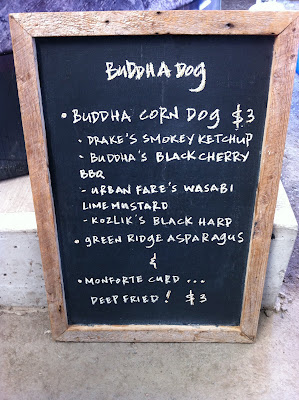 BUDDHA DOG
• BUDDHA CORN DOG $3
- DRAKE'S SMOKEY KETCHUP
- BUDDHA'S BLACK CHERRY
BBQ
- URBAN FARE'S WASABI
LIME MUSTARD
- KOZLIK'S BLACK HARP
• GREEN RIDGE ASPARAGUS
&
• MONFORTE CURD ...
DEEP FRIED! $3